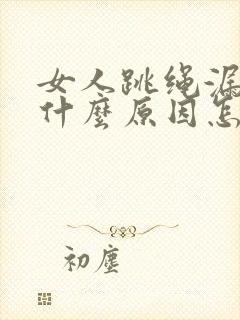 女人跳绳漏
什麼原因怎
初塵